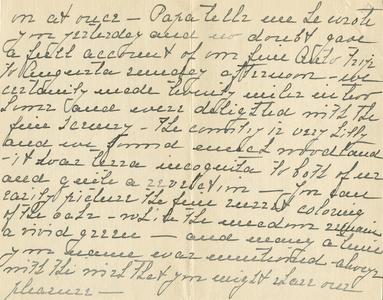 on at once - Papa tells me he wrote
you yesterday and no doubt gave
a full account of our fine Auto trip
to Augusta Sunday afternoon - we
certainly made twenty miles in two
hours and were delighted with the
fine scenery - The country is very hilly
and we found much woodland
- it was terra incognita to both of us
and quite a revelation - You can
easily picture the fine sunset coloring
of the oaks - while the meadows remain
a vivid green - and many a time
your name was mentioned always
with the wish that you might share our
pleasure -